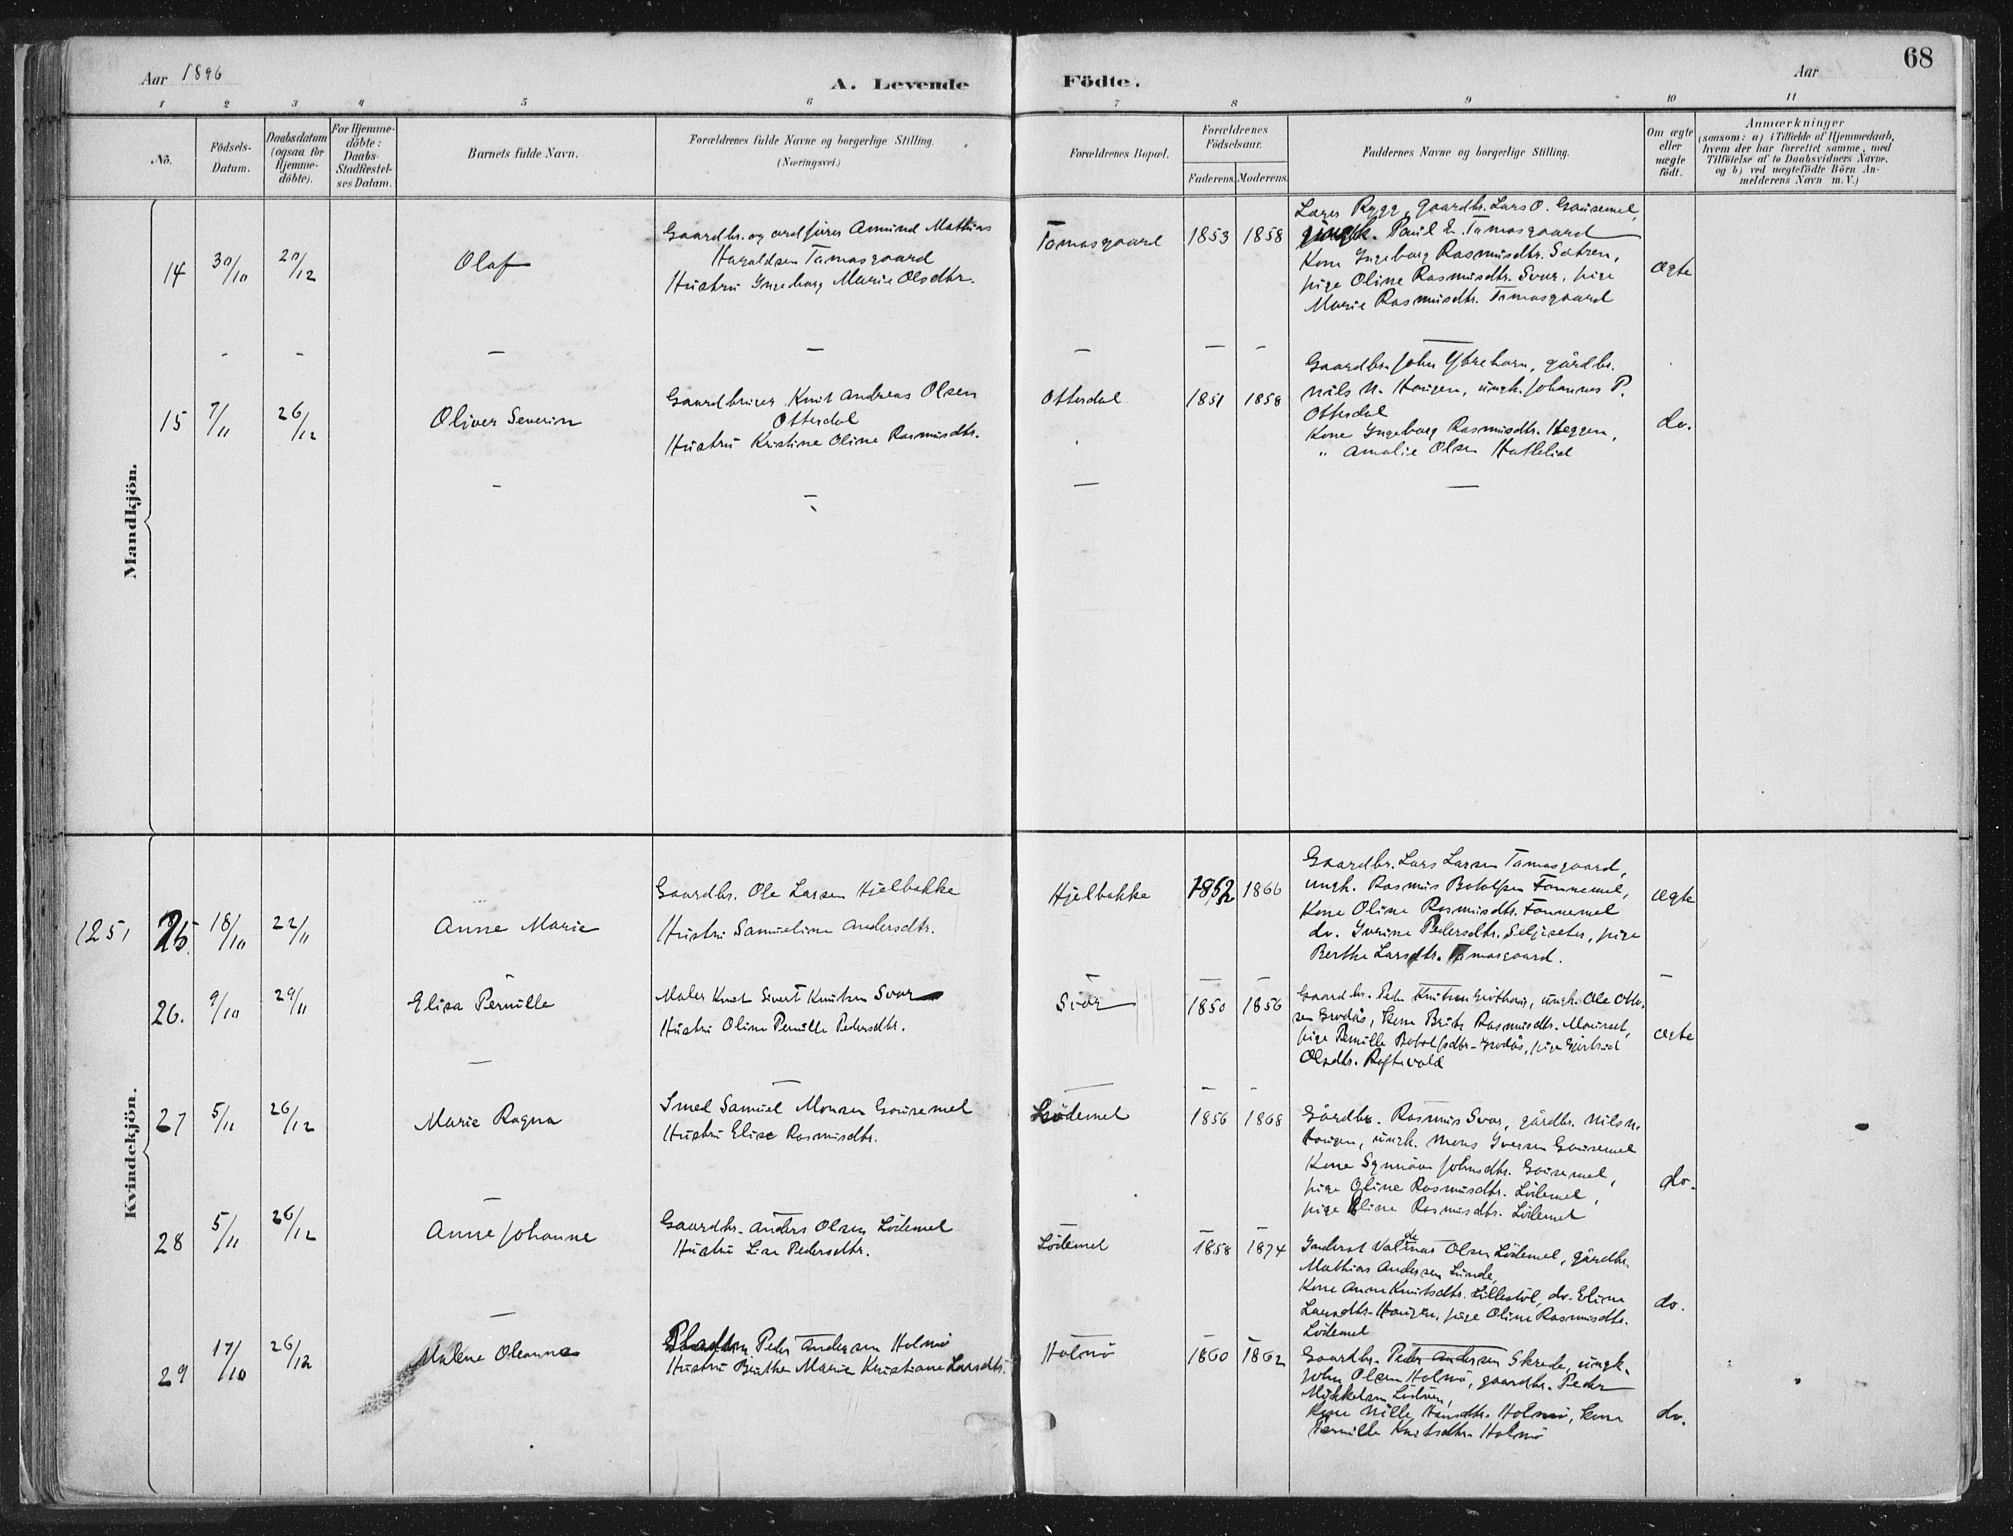 Aar 1896
A. Levende
Födte.
Aar
68
1 2 3 4 5 6 7 8 9 10 11
No.
Födsels-
Datum.
Daabsdatum
(ogsaa for
Hjemme-
döbte).
For Hjemme-
döbte:
Daabs-
Stadfæstel-
ses Datum.
Barnets fulde Navn.
Forældrenes fulde Navne og borgerlige Stilling.
(Næringsvei.)
Forældrenes Bopæl.
Forældrenes
Födselsaar.
Faderens. Moderens.
Faddernes Navne og borgerlige Stilling.
Om ægte
eller
uægte
födt.
Anmærkninger
(saasom: a) i Tilfælde af Hjemmedaab,
hvem der har forrettet samme, med
Tilföielse af to Daabsvidners Navne,
og b) ved uægtefödte Börn An-
melderens Navn m. V.)
Mandkjön.
14
30/10
20/12
Olaf
Gaardbr. og ordförer Amund Mathias
Haraldsen Tomasgaard
Hustru Ingeborg Marie Olsdtr.
Tomasgaard
1853
1858
Lærer Rygg, gaardbr. Lars O. Gausemel,
ungk. Paul E. Tomasgaard
Kone Ingeborg Rasmusdtr. Satren,
pige Oline Rasmusdtr. Svor, pige
Marie Rasmusdtr. Tomasgaard
ægte
15
7/11
26/12
Oliver Severin
Gaardbruger Knut Andreas Olsen
Otterdal
Hustru Kristine Oline Rasmusdtr.
Otterdal
1851
1858
Gaardbr. John Ytrehorn, gårdbr.
Nils N. Haugen, ungk. Johannes P.
Otterdal
Kone Ingeborg Rasmusdtr. Heggen,
" Amalie Olsen Hatlelid
do.
Kvindekjön.
1251
25.
18/10
22/11
Anne Marie
Gaardbr. Ole Larsen Hjelbakke
Hustru Samueline Andersdtr.
Hjelbakke
1852
1866
Gaardbr. Lars Larsen Tomasgaard,
ungk. Rasmus Botolfsen Fannemel,
Kone Oline Rasmusdtr. Fannemel
do. Iverine Pedersdtr. Seljeseter, pige
Berthe Larsdtr. Tomasgaard.
ægte
26.
9/10
29/11
Elisa Pernille
Maler Knut Sivert Knutsen Svor
Hustru Oline Pernille Pedersdtr.
Svor
1850
1856
Gaardbr. Peder Knutsen, ungk. Ole Otto-
sen Grodås, Kone Brite Rasmusdtr. Mourset,
pige Pernille Botolfsdtr. Grodås, pige Gjertrud
Olsdtr. Raftevold
ægte
27
5/11
26/12
Marie Ragna
Smed Samuel Monsen Gausemel
Hustru Elise Rasmusdtr.
Lødemel
1856
1868
Gårdbr. Rasmus Svor, gårdbr. Nils N.
Haugen, ungk. Mons Iversen Gausemel
Kone Synnöve Johnsdtr. Gausemel,
pige Oline Rasmusdtr. Lödemel,
pige Eline Rasmusdtr. Lödemel
do.
28
5/11
26/12
Anne Johanne
Gaardbr. Anders Olsen Lödemel
Hustru Lise Pedersdtr.
Lödemel
1858
1874
Inderst Olsen Lödemel, gårdbr.
Mathias Andersen Lunde,
Kone Anne Knutsdtr. Lillestöl, do. Eline
Larsdtr. Haugen, pige Oline Rasmusdtr.
Lödemel
do.
29
17/10
26/12
Malene Oleanna
Pladsm. Peder Andersen Holmö
Hustru Birthe Marie Kristiane Larsdtr.
Holmö
1860
1862
Gaardbr. Peder Andersen Skrede, ungk.
John Olsen Holmö, gaardbr. Peder
Mikkelsen
Kone Nille Hansdtr. Holmö, Kone
Pernille Knutsdtr. Holmö
do.